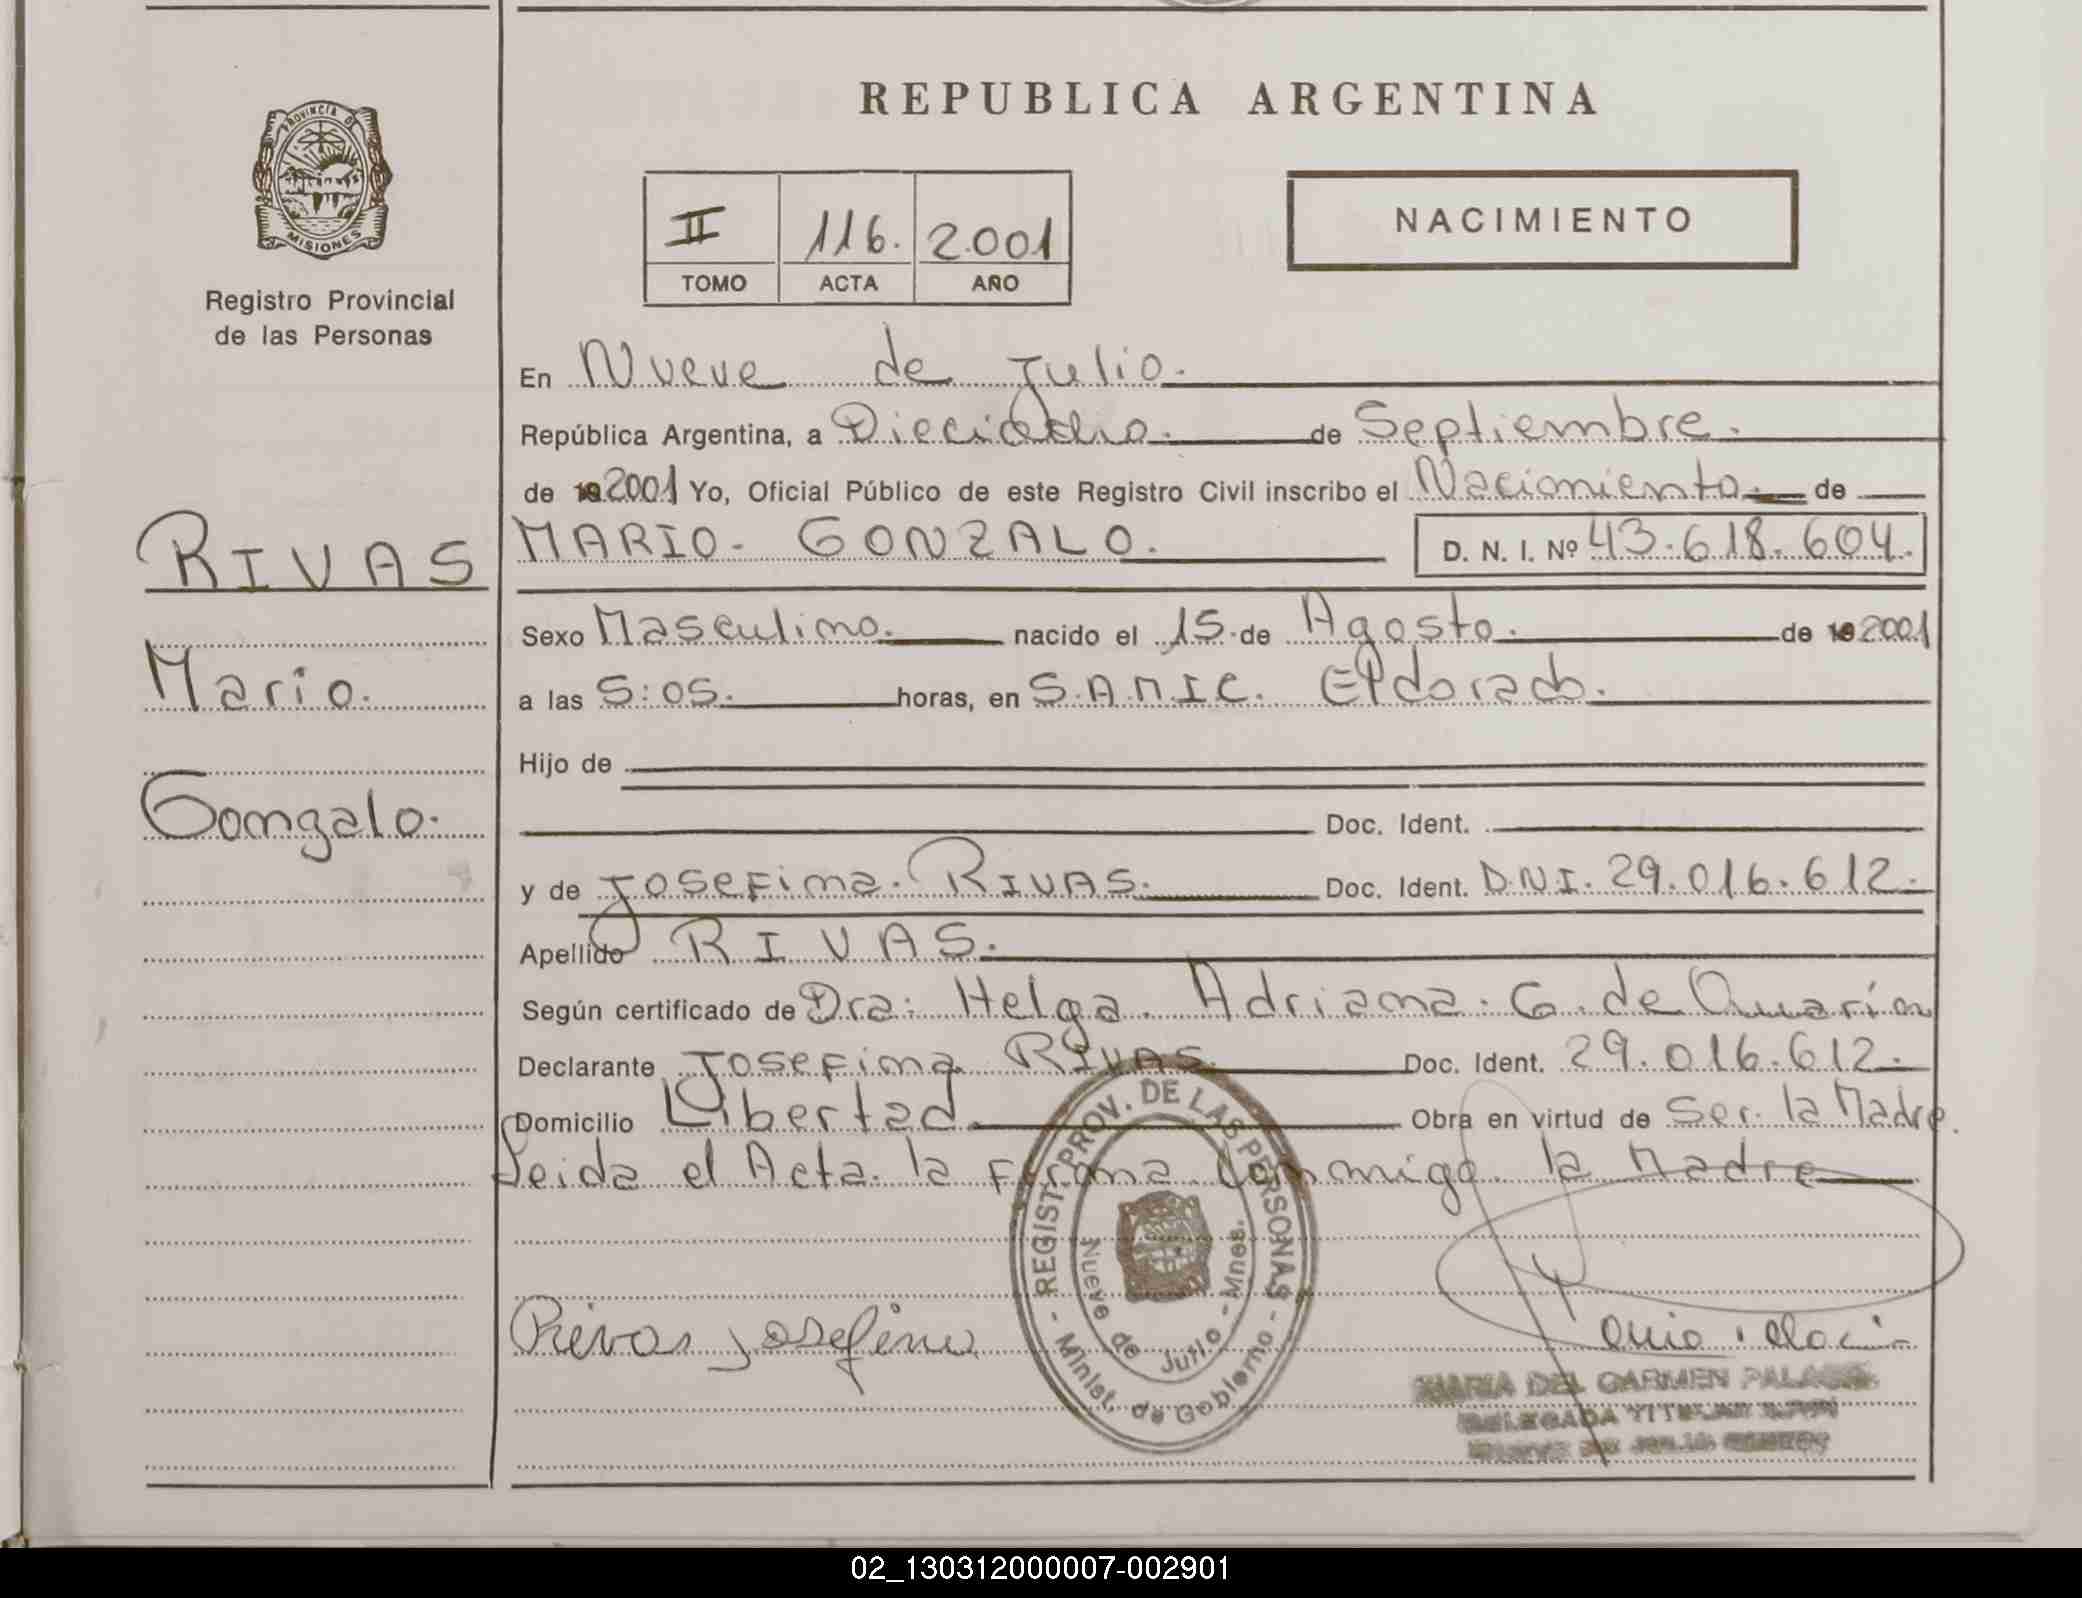 REPUBLICA ARGENTINA
PROVINCIA DE
MISIONES
Registro Provincial
de las Personas
II 116. 2.001
TOMO ACTA AÑO
NACIMIENTO
En Nueve de Julio.
República Argentina, a Dieciocho. de Septiembre.
de 19 2001 Yo, Oficial Público de este Registro Civil inscribo el Nacimiento. de
RIVAS
MARIO. GONZALO. D. N. I. Nº 43.618.604.
Sexo Masculino. nacido el 15 de Agosto. de 19 2001
Mario.
a las 5:05. horas, en S.A.M.I.C. Eldorado.
Hijo de
Gonzalo.
Doc. Ident.
y de Josefina. RIVAS. Doc. Ident. D.N.I. 29.016.612.
Apellido RIVAS.
Según certificado de Dra: Helga. Adriana. G. de
Declarante Josefina RIVAS. Doc. Ident. 29.016.612.
Domicilio Libertad. Obra en virtud de Ser. la Madre.
Leida el Acta. la firma Conmigo la Madre
REGIST. PROV. DE LAS PERSONAS
Nueve de Julio - Mnes.
- Minist. de Gobierno -
Rivas Josefina
MARIA DEL CARMEN PALACIO
DELEGADA TITULAR
02_130312000007-002901